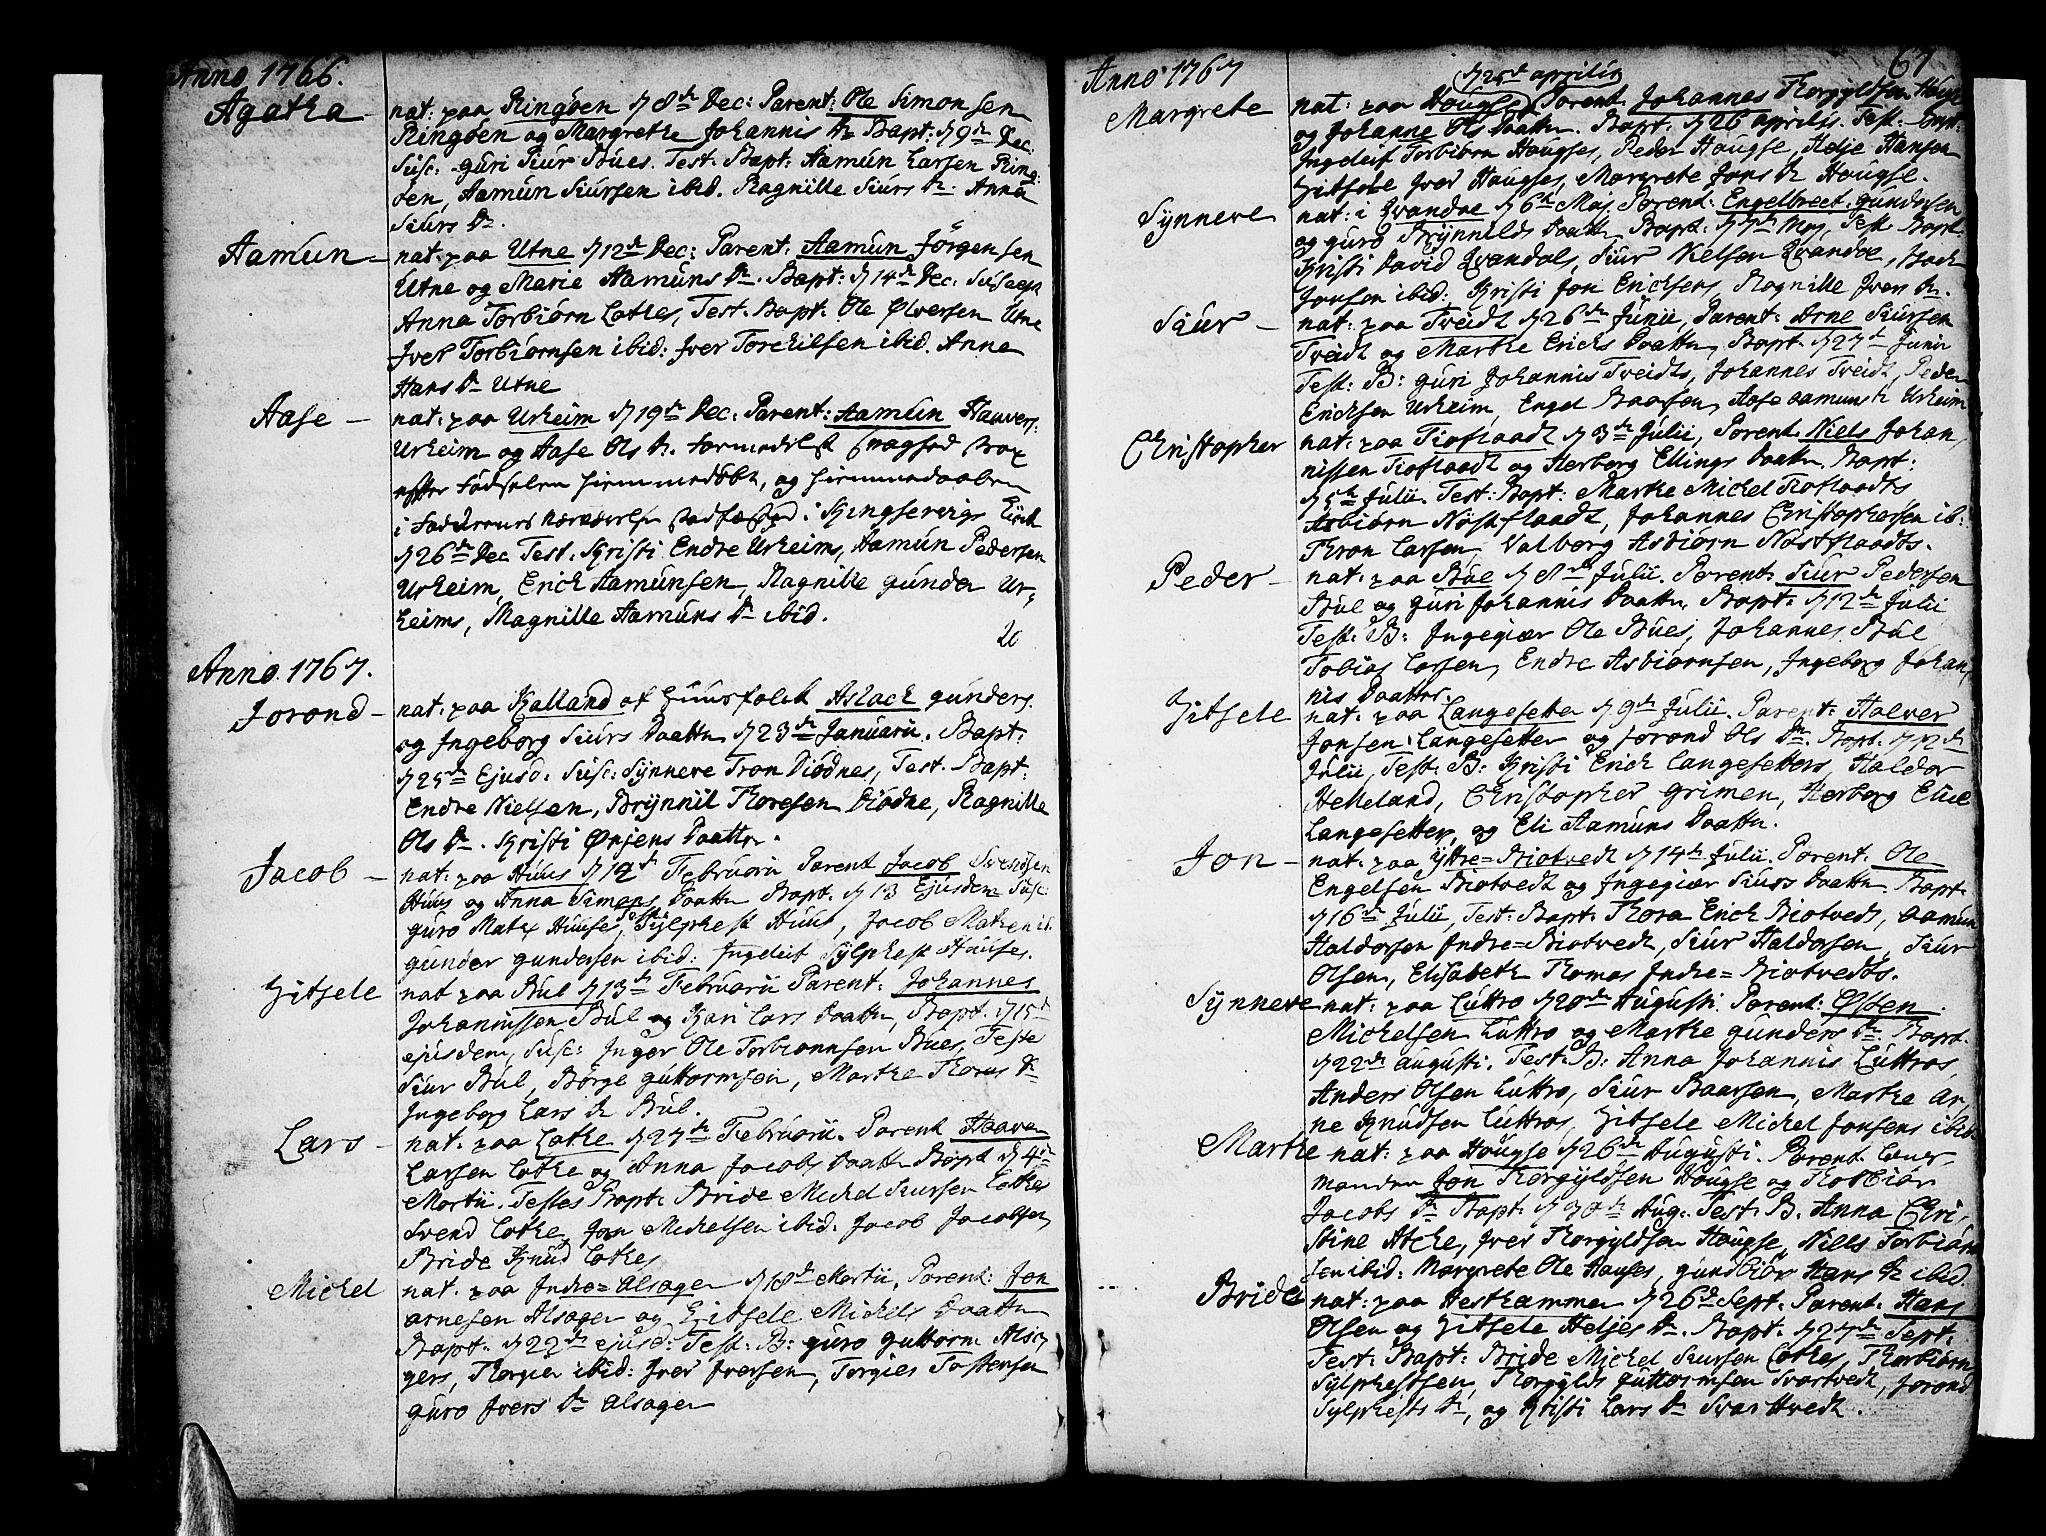 Anno 1766.
Agatha
nat: paa Ringöen d 8de Dec: Parent: Ole Simonsen
Ringöen og Margrethe Johannis Dr. Bapt: d 9de Dec:
Susc: guri Siur Bues. Test: Bapt: Aamun Larsen Ring-
öen, Aamun Siursen ibid. Ragnille Siurs Dr. Anna
Siurs Dr.
Aamun
nat: paa Utne d 12de Dec: Parent: Aamun Jörgensen
Utne og Marie Aamuns Dr. Bapt: d 14de Dec: Suscep
Anna Torbiörn Lothes, Test. Bapt: Ole Ølversen Utne
Iver Torbiörnsen ibid: Iver Torchilsen ibid. Anne
Hans Dr Utne
Aase
nat: paa Urheim d 19de Dec: Parent: Aamun Hauvers:
Urheim og Aase Ols Dr. formedelst svaghed strax
efter Födselen hiemmedöbt, og hiemmedaaben
i Fadderners nærværelse stadfæsted i Kingservigs Kirk
d 26de Dec Test: Kristi Endre Urheims, Aamun Pedersen
Urheim, Erich Aamunsen, Ragnille gunder Ur-
heims, Magnille Aamuns Dr ibid.
20
Anno 1767.
Jorond
nat: paa Kalland af Huusfolck Aslach gunders.
og Ingeborg Siurs Daatter d 23de Januarii. Bapt:
d 25de Ejusd: Susc: Synneve Tron Diödnes, Test. Bapt:
Endre Nielsen, Brynnil Thoresen Diödne, Ragnille
Ols Dr. Kristi Ørjens Daatter.
Jacob
nat: paa Huus d 12de Februarii Parent Jacob Svendsen
Huus og Anna Simons Daatter Bapt. d 13 Ejusdem Susc:
guro Mates Huuses, Test: Sylphest Huus, Jacob
gunder gundersen ibid: Ingeleit Sylphest Huuses.
Zitsele
nat paa Bul d 13de Februarii Parent: Johannes
Johannissen Bul og Kari Lars Daatter, Bapt. d 15de
ejusdem, Susc: Inger Ole Torbiönnsen Bues, Teste
Siur Bul, Börge guttormsen, Marthe Thores Dr
Ingeborg Lars Dr Bul.
Lars
nat: paa Lothe d 27de Februarii. Parent Haaver
Larsen Lothe og Anna Jacobs Daatter Bapt d 4de
Martii. Testes Bapt: Bride Michel Siursen Lothes
Svend Lothe, Jon Michelsen ibid: Jacob Jacobsen
Bride Knud Lothes
Michel
nat. paa Indre=Alsager d 18de Martii, Parent: Jon
arnesen Alsager og Zitsele Michels Daatter
Bapt: d 22de ejusd: Test: B: guro guttorm Alsa-
gers, Thorgier ibid: Iver Iversen, Torgies Tostensen
guro Ivers Dr Alsager
Anno 1767
67
Margrete
d 25de aprilis
nat: paa Hougse Parent. Johannes Thorgyldsen Hougs
og Johanne Ols Daatter. Bapt: d 26 aprilis. Test: Bapt:
Ingeleif Torbiörn Hougses, Peder Hougse, Helje Hansen
Zitsele Iver Hougses, Margrete Jons Dr Hougse.
Synneve
nat: i Qvandae d 6te Maj Parent: Engelbrect gundersen
og guro Brynnilds Daatter Bapt: d 7de Maj, Test Bapt:
Kristi David Qvandals, Siur Nielsen Qvandae,
Jonsen ibid: Kristi Jon Ericksens, Ragnille Ivers Dr.
Siur
nat: paa Tveidt d 26de Junii, Parent: Arne Siursen
Tveidt og Marthe Erichs Daatter, Bapt. d 27de Junii
Test: B: guri Johannis Tveidts, Johannes Tveidt, Peder
Ericksen Urheim, Engel Baarsen, Aase aamuns Dr Urheim
Christopher
nat: paa Tioflaadt d 3de Julii, Parent. Niels Johan,
nissen Tioflaadt og Herborg Ellings Daatter Bapt:
d 5te Julii. Test: Bapt: Marthe Michel Tioflaadts
Asbiörn Nöstflaadt, Johannes Christophersen ib:
Thron Larsen, Valborg Asbiörn Nöstflaadts.
Peder
nat: paa Bue d 8de Julii. Parent: Siur Pedersen
Bul og guri Johannis Daatter. Bapt: d 12de Julii
Test: B: Ingegiær Ole Bues, Johannes Bul
Tobias Larsen, Endre Asbiörnsen, Ingeborg Johan,
nis Daatter.
Zitsele
nat: paa Langesetter d 9de Julii. Parent: Halver
Jonsen Langesetter og jorond Ols Dr. Bapt. d 12de
Julii, Test: B: Kristi Erich Langesetters, Haldor
Helleland, Christopher Grimen, Herborg
Langesetter, og Eli Aamuns Daatter.
Jon
nat: paa Yttre=Biotvedt d 14de Julii. Parent. Ole
Engelsen Biotvedt og Ingegiær Siurs Daatter Bapt.
d 16de Julii, Test: Bapt: Thora Erich Biotvedts, Aamun
Haldorsen Indre=Biotvedt, Siur Haldorsen, Siur
Olsen, Elisabeth Thomas Indre=Biotvedts.
Synneve
nat: paa Luttro d 20de Augusti. Parent: Østen
Michelsen Luttro og Marthe gunders Dr. Bapt.
d 22de augusti. Test: B: Anna Johannis Luttros,
Anders Olsen Luttro, Siur Baarsen, Marthe Ar,
ne Knudsen Luttros, Zitsele Michel Jonsens ibid.
Marthe
nat: paa Hougse d 26de Augusti. Parent Lens-
manden Jon Thorgyldsen Hougse og Thorbiör
Jacobs Dr Bapt. d 30de Aug. Test: B. Anna Chri,
stine Atche, Iver Thorgyldsen Hougse, Niels Torbiörn
sen ibid: Margrete Ole Houses, gundbiör Hans Dr ibid.
Bride
nat: paa Hesthammer d 26de Sept. Parent. Hans
Olsen og Zitsele Heljes Dr. Bapt. d 27de Sept.
Test: Bapt: Bride Michel Siursen Lothes, Thorbiörn
Sylphestsen, Thorgylds guttormsen Svartvedt, Jorond
Sylphests Dr, og Kristi Lars Dr Svartvedt.